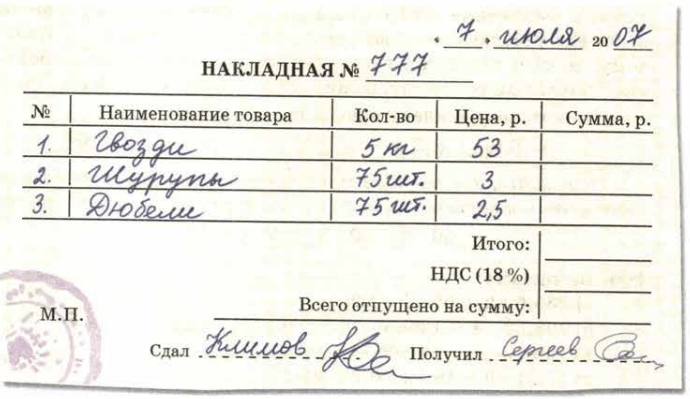 « 7 » июля 2007
НАКЛАДНАЯ № 777
№ Наименование товара Кол-во Цена, р. Сумма, р.
1. Гвозди 5 кг 53
2. Шурупы 75 шт. 3
3. Дюбели 75 шт. 2,5
Итого:
НДС (18 %)
Всего отпущено на сумму:
М.П.
Сдал Климов Получил Сергеев